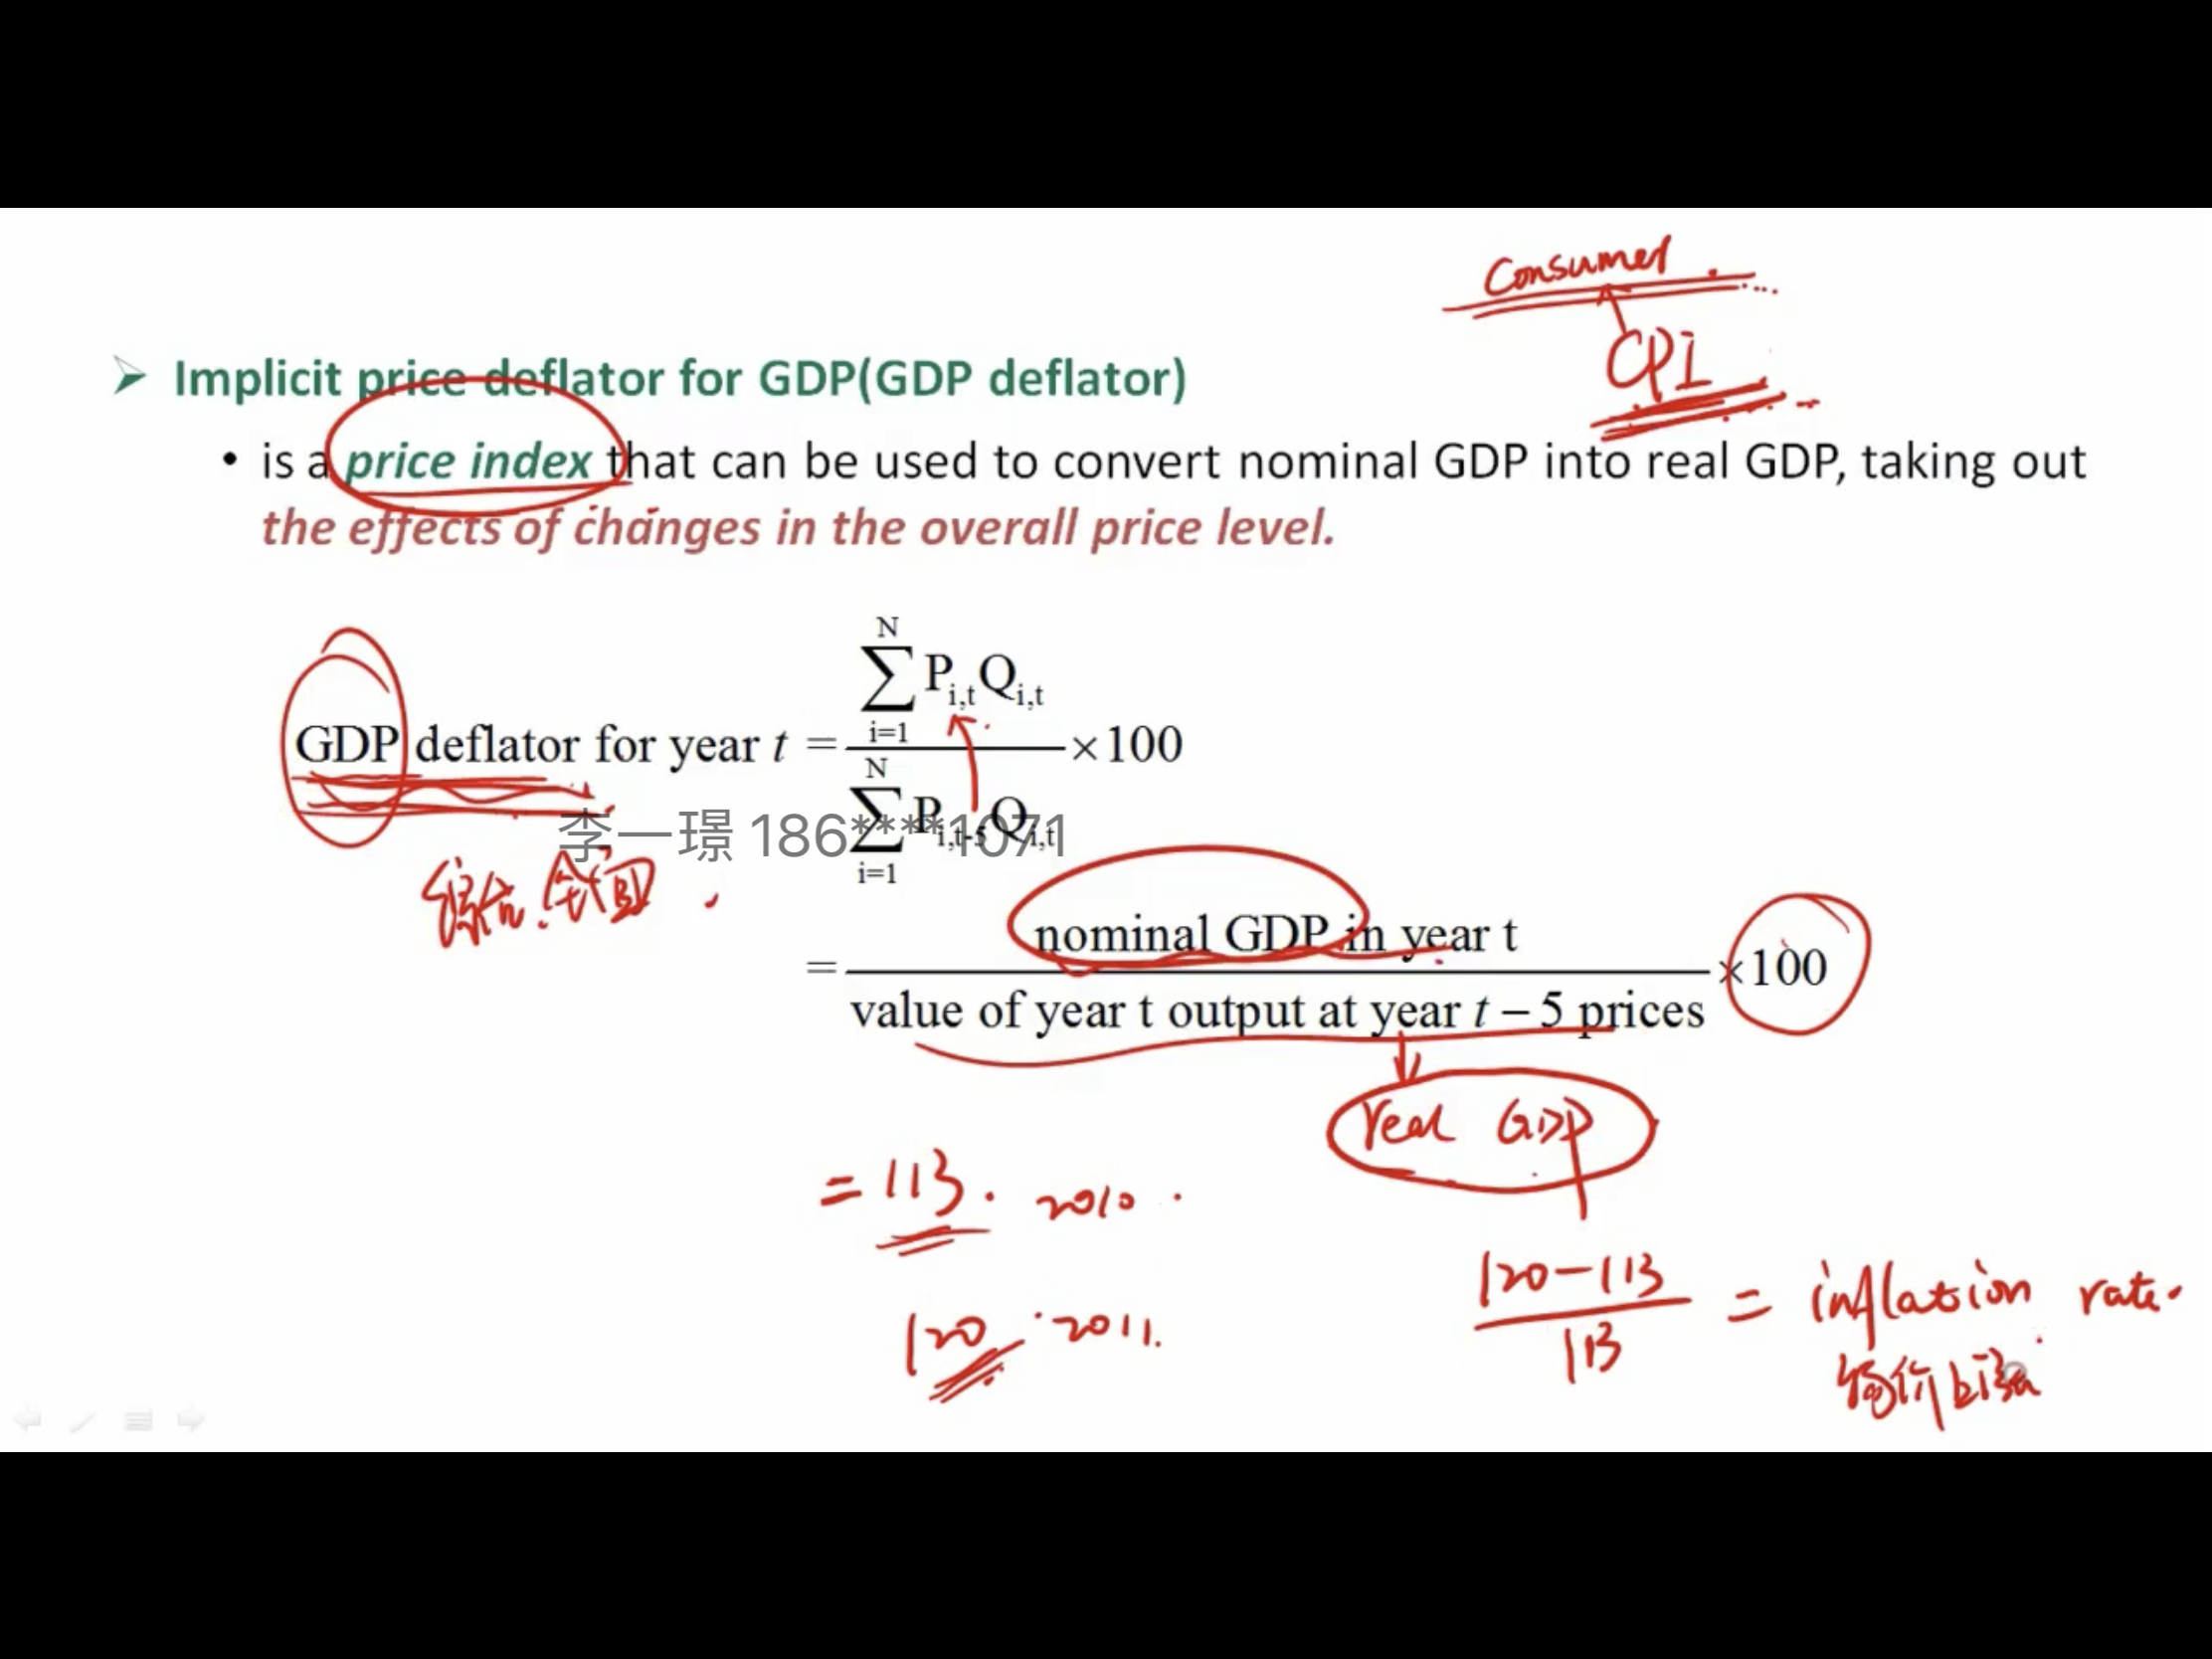 Consumer
CPI
➢ Implicit price deflator for GDP(GDP deflator)
• is a price index that can be used to convert nominal GDP into real GDP, taking out
the effects of changes in the overall price level.
GDP deflator for year t = ∑_{i=1}^{N} P_{i,t} Q_{i,t} / ∑_{i=1}^{N} P_{i,t-5} Q_{i,t} ×100
李一璟 186****1071
综合.全面
= nominal GDP in year t / value of year t output at year t – 5 prices ×100
real GDP
= 113. 2010.
120 2011.
120-113 / 113 = inflation rate.
物价上涨